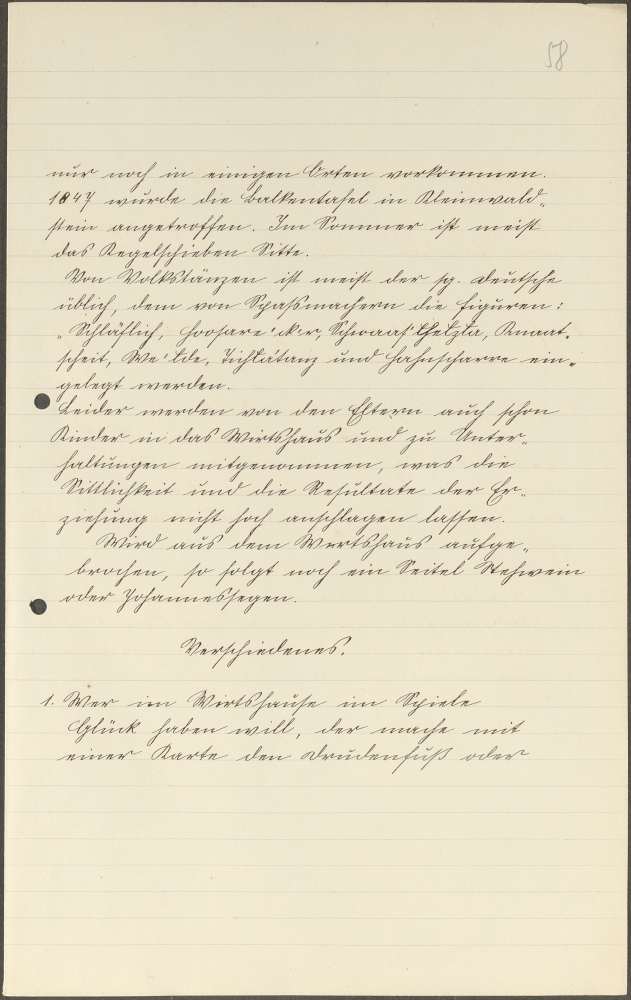 58
nur noch in einigen Orten vorkommen.
1847 wurde die Balkentafel in Kleinwald„
stein angetroffen. Im Sommer ist meist
das Kegelschieben Sitte.
Von Volkstänzen ist meist der sg. Deutsche
üblich, dem von Spaßmachern die Figuren:
„Schläflich,
scheit, und Hahnscharre ein„
gelegt werden.
Leider werden von den Eltern auch schon
Kinder in das Wirtshaus und zu Unter„
haltungen mitgenommen, was die
Sittlichkeit und die Resultate der Er„
ziehung nicht hoch anschlagen lassen.
Wird aus dem Wirtshaus aufge„
brochen, so folgt noch ein Seitel Stehwein
oder Johannessegen.
Verschiedenes.
1. Wer im Wirtshause im Spiele
Glück haben will, der mache mit
einer Karte den Drudenfuß oder